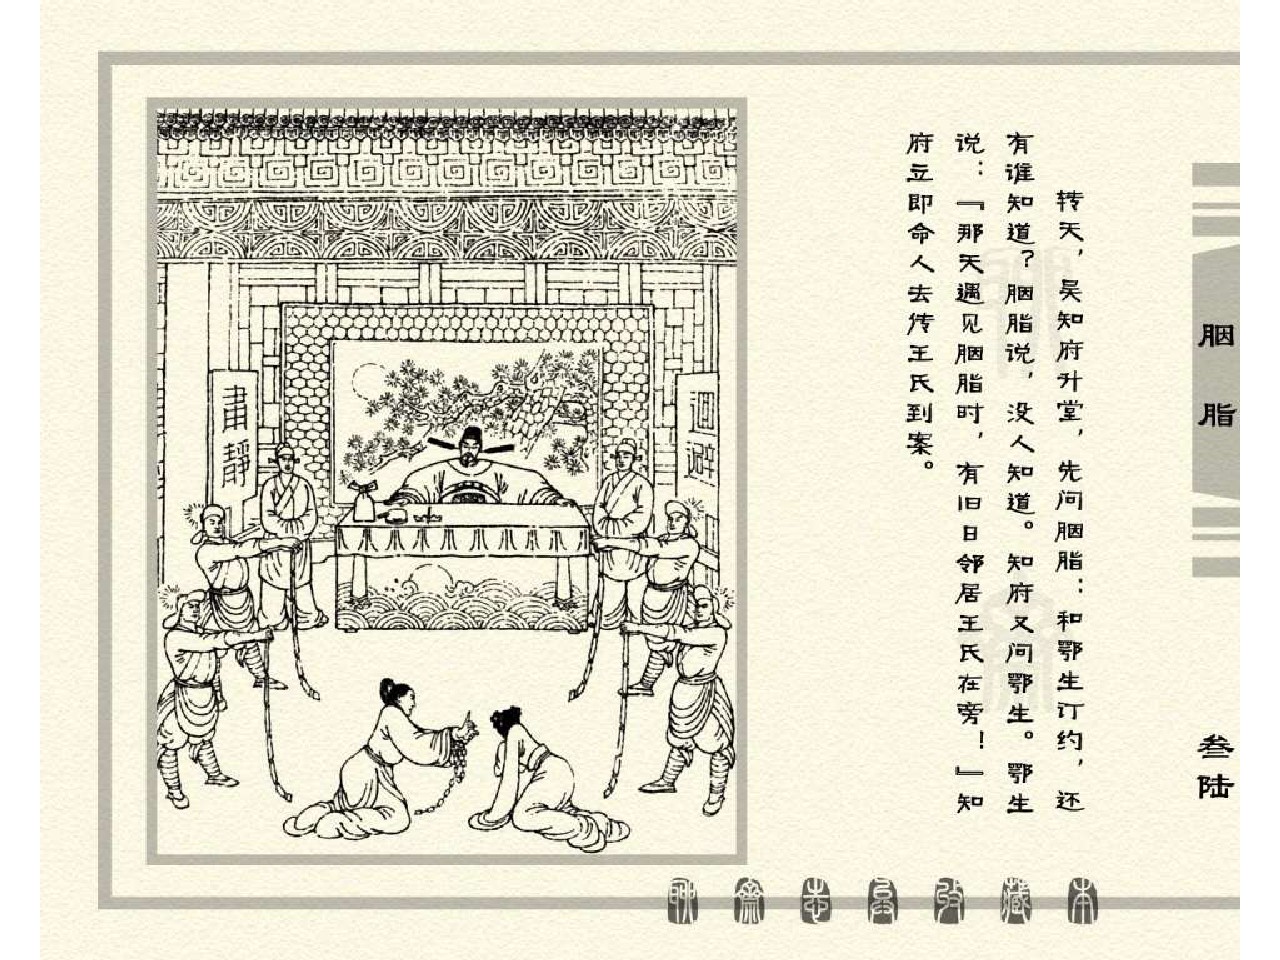 转天，吴知府升堂，先问胭脂：和鄂生订约，还
有谁知道？胭脂说，没人知道。知府又问鄂生。鄂生
说：『那天遇见胭脂时，有旧日邻居王氏在旁！』知
府立即命人去传王氏到案。
胭脂
叁陆
肃靜
迴避
聊齋志異收藏本